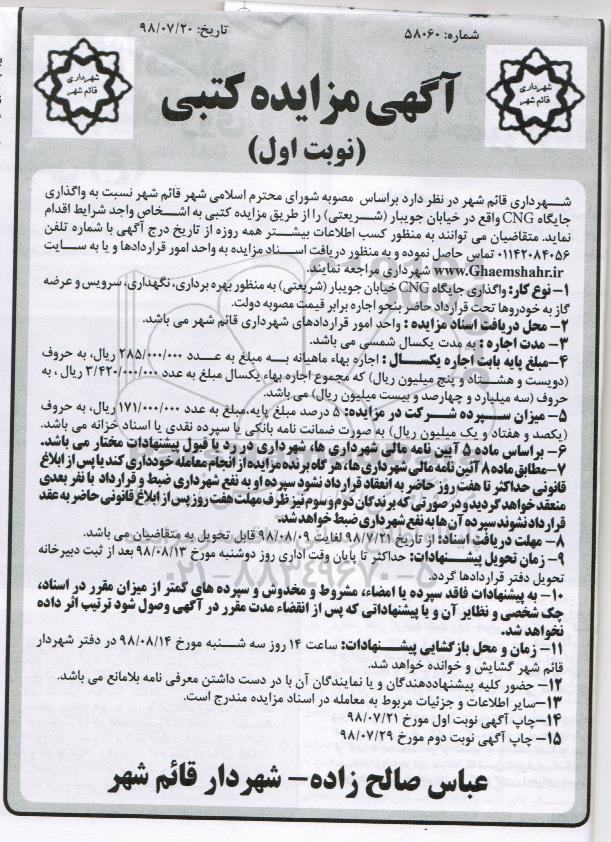 شماره: ۵۸۰۶۰
تاریخ: ۹۸/۰۷/۲۰
شهرداری
قائم شهر
شهرداری
قائم شهر
آگهی مزایده کتبی
(نوبت اول)
شـــهرداری قائم شهر در نظر دارد براساس مصوبه شورای محترم اسلامی شهر قائم شهر نسبت به واگذاری
جایگاه CNG واقع در خیابان جویبار (شـــریعتی) را از طریق مزایده کتبی به اشـــخاص واجد شرایط اقدام
نماید. متقاضیان می توانند به منظور کسب اطلاعات بیشـــتر همه روزه از تاریخ درج آگهی با شماره تلفن
۰۱۱۴۲۰۸۴۰۵۶ تماس حاصل نموده و به منظور دریافت اســـناد مزایده به واحد امور قراردادها و یا به سایت
www.Ghaemshahr.ir شهرداری مراجعه نمایند.
۱- نوع کار: واگذاری جایگاه CNG خیابان جویبار (شریعتی) به منظور بهره برداری، نگهداری، سرویس و عرضه
گاز به خودروها تحت قرارداد حاضر بنحو اجاره برابر قیمت مصوبه دولت.
۲- محل دریافت اسناد مزایده : واحد امور قراردادهای شهرداری قائم شهر می باشد.
۳- مدت اجاره : به مدت یکسال شمسی می باشد.
۴-مبلغ پایه بابت اجاره یکســـال : اجاره بهاء ماهیانه بـــه مبلغ به عـــدد ۲۸۵/۰۰۰/۰۰۰ ریال، به حروف
(دویست و هشـــتاد و پنج میلیون ریال) که مجموع اجاره بهاء یکسال مبلغ به عدد ۳/۴۲۰/۰۰۰/۰۰۰ ریال ، به
حروف (سه میلیارد و چهارصد و بیست میلیون ریال) می باشد.
۵- میزان ســـپرده شـــرکت در مزایده: ۵ درصد مبلغ پایه،مبلغ به عدد ۱۷۱/۰۰۰/۰۰۰ ریال، به حروف
(یکصد و هفتاد و یک میلیون ریال) به صورت ضمانت نامه بانکی یا سپرده نقدی یا اسناد خزانه می باشد.
۶- براساس ماده ۵ آیین نامه مالی شهرداری ها، شهرداری در رد یا قبول پیشنهادات مختار می باشد.
۷-مطابق ماده ۸ آئین نامه مالی شهرداری ها، هرگاه برنده مزایده از انجام معامله خودداری کند یا پس از ابلاغ
قانونی حداکثر تا هفت روز حاضر به انعقاد قرارداد نشود سپرده او به نفع شهرداری ضبط و قرارداد با نفر بعدی
منعقد خواهد گردید و در صورتی که برندگان دوم و سوم نیز ظرف مهلت هفت روز پس از ابلاغ قانونی حاضر به عقد
قرارداد نشوند سپرده آن ها به نفع شهرداری ضبط خواهد شد.
۸- مهلت دریافت اسناد: از تاریخ ۹۸/۷/۲۱ لغایت ۹۸/۰۸/۰۹ قابل تحویل به متقاضیان می باشد.
۹- زمان تحویل پیشـــنهادات: حداکثر تا پایان وقت اداری روز دوشنبه مورخ ۹۸/۰۸/۱۳ بعد از ثبت دبیرخانه
تحویل دفتر قراردادها گردد.
۱۰- به پیشنهادات فاقد سپرده یا امضاء، مشروط و مخدوش و سپرده های کمتر از میزان مقرر در اسناد،
چک شخصی و نظایر آن و یا پیشنهاداتی که پس از انقضاء مدت مقرر در آگهی وصول شود ترتیب اثر داده
نخواهد شد.
۱۱- زمان و محل بازگشایی پیشـــنهادات: ساعت ۱۴ روز سه شـــنبه مورخ ۹۸/۰۸/۱۴ در دفتر شهردار
قائم شهر گشایش و خوانده خواهد شد.
۱۲- حضور کلیه پیشنهاددهندگان و یا نمایندگان آن با در دست داشتن معرفی نامه بلامانع می باشد.
۱۳-سایر اطلاعات و جزئیات مربوط به معامله در اسناد مزایده مندرج است.
۱۴-چاپ آگهی نوبت اول مورخ ۹۸/۰۷/۲۱
۱۵- چاپ آگهی نوبت دوم مورخ ۹۸/۰۷/۲۹
عباس صالح زاده- شهردار قائم شهر
۰۲۱-۸۸۳۴۹۶۷۰-۵